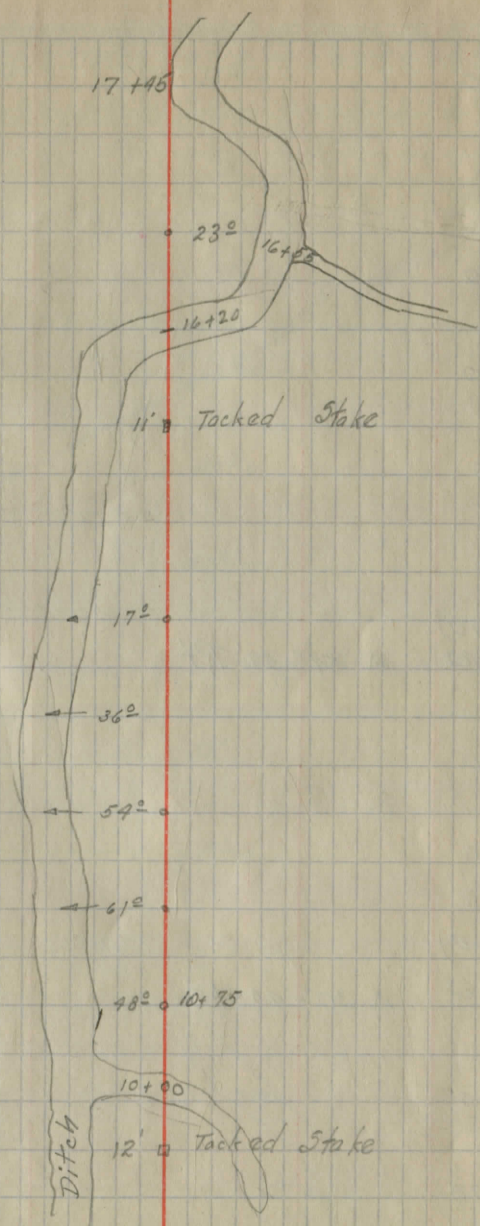 17+45
23º
16+55
16+20
11' Tacked Stake
17º
36º
54º
61º
48º 10+75
10+00
12' Tacked Stake
Ditch